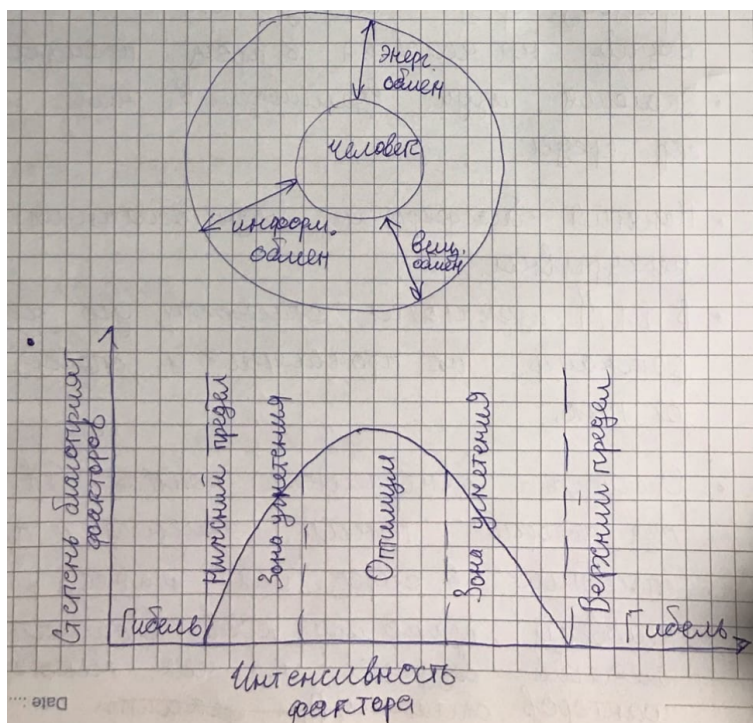 энерг.
обмен
человек
информ.
обмен
вещ.
обмен
Степень благоприят
факторов
Нижний предел
Зона угнетения
Оптимум
Зона угнетения
Верхний предел
Гибель
Гибель
Интенсивность
фактора
Date :